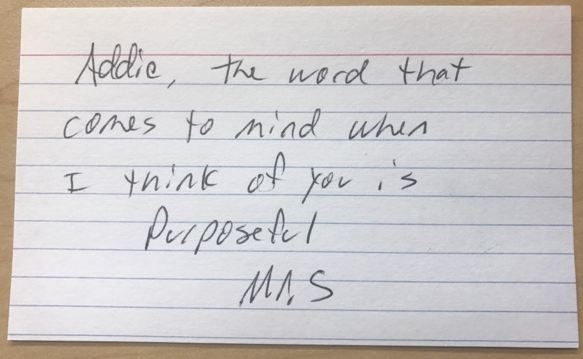 Addie, the word that
comes to mind when
I think of you is
Purposeful
Mr. S